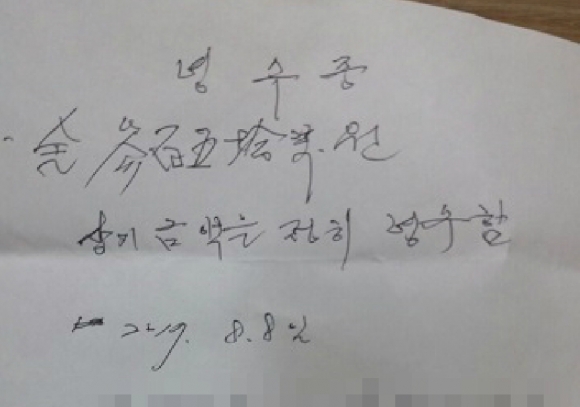 령 수 증
金 參百五拾萬.원
상기 금액을 정히 령수함
2017. 8. 8일